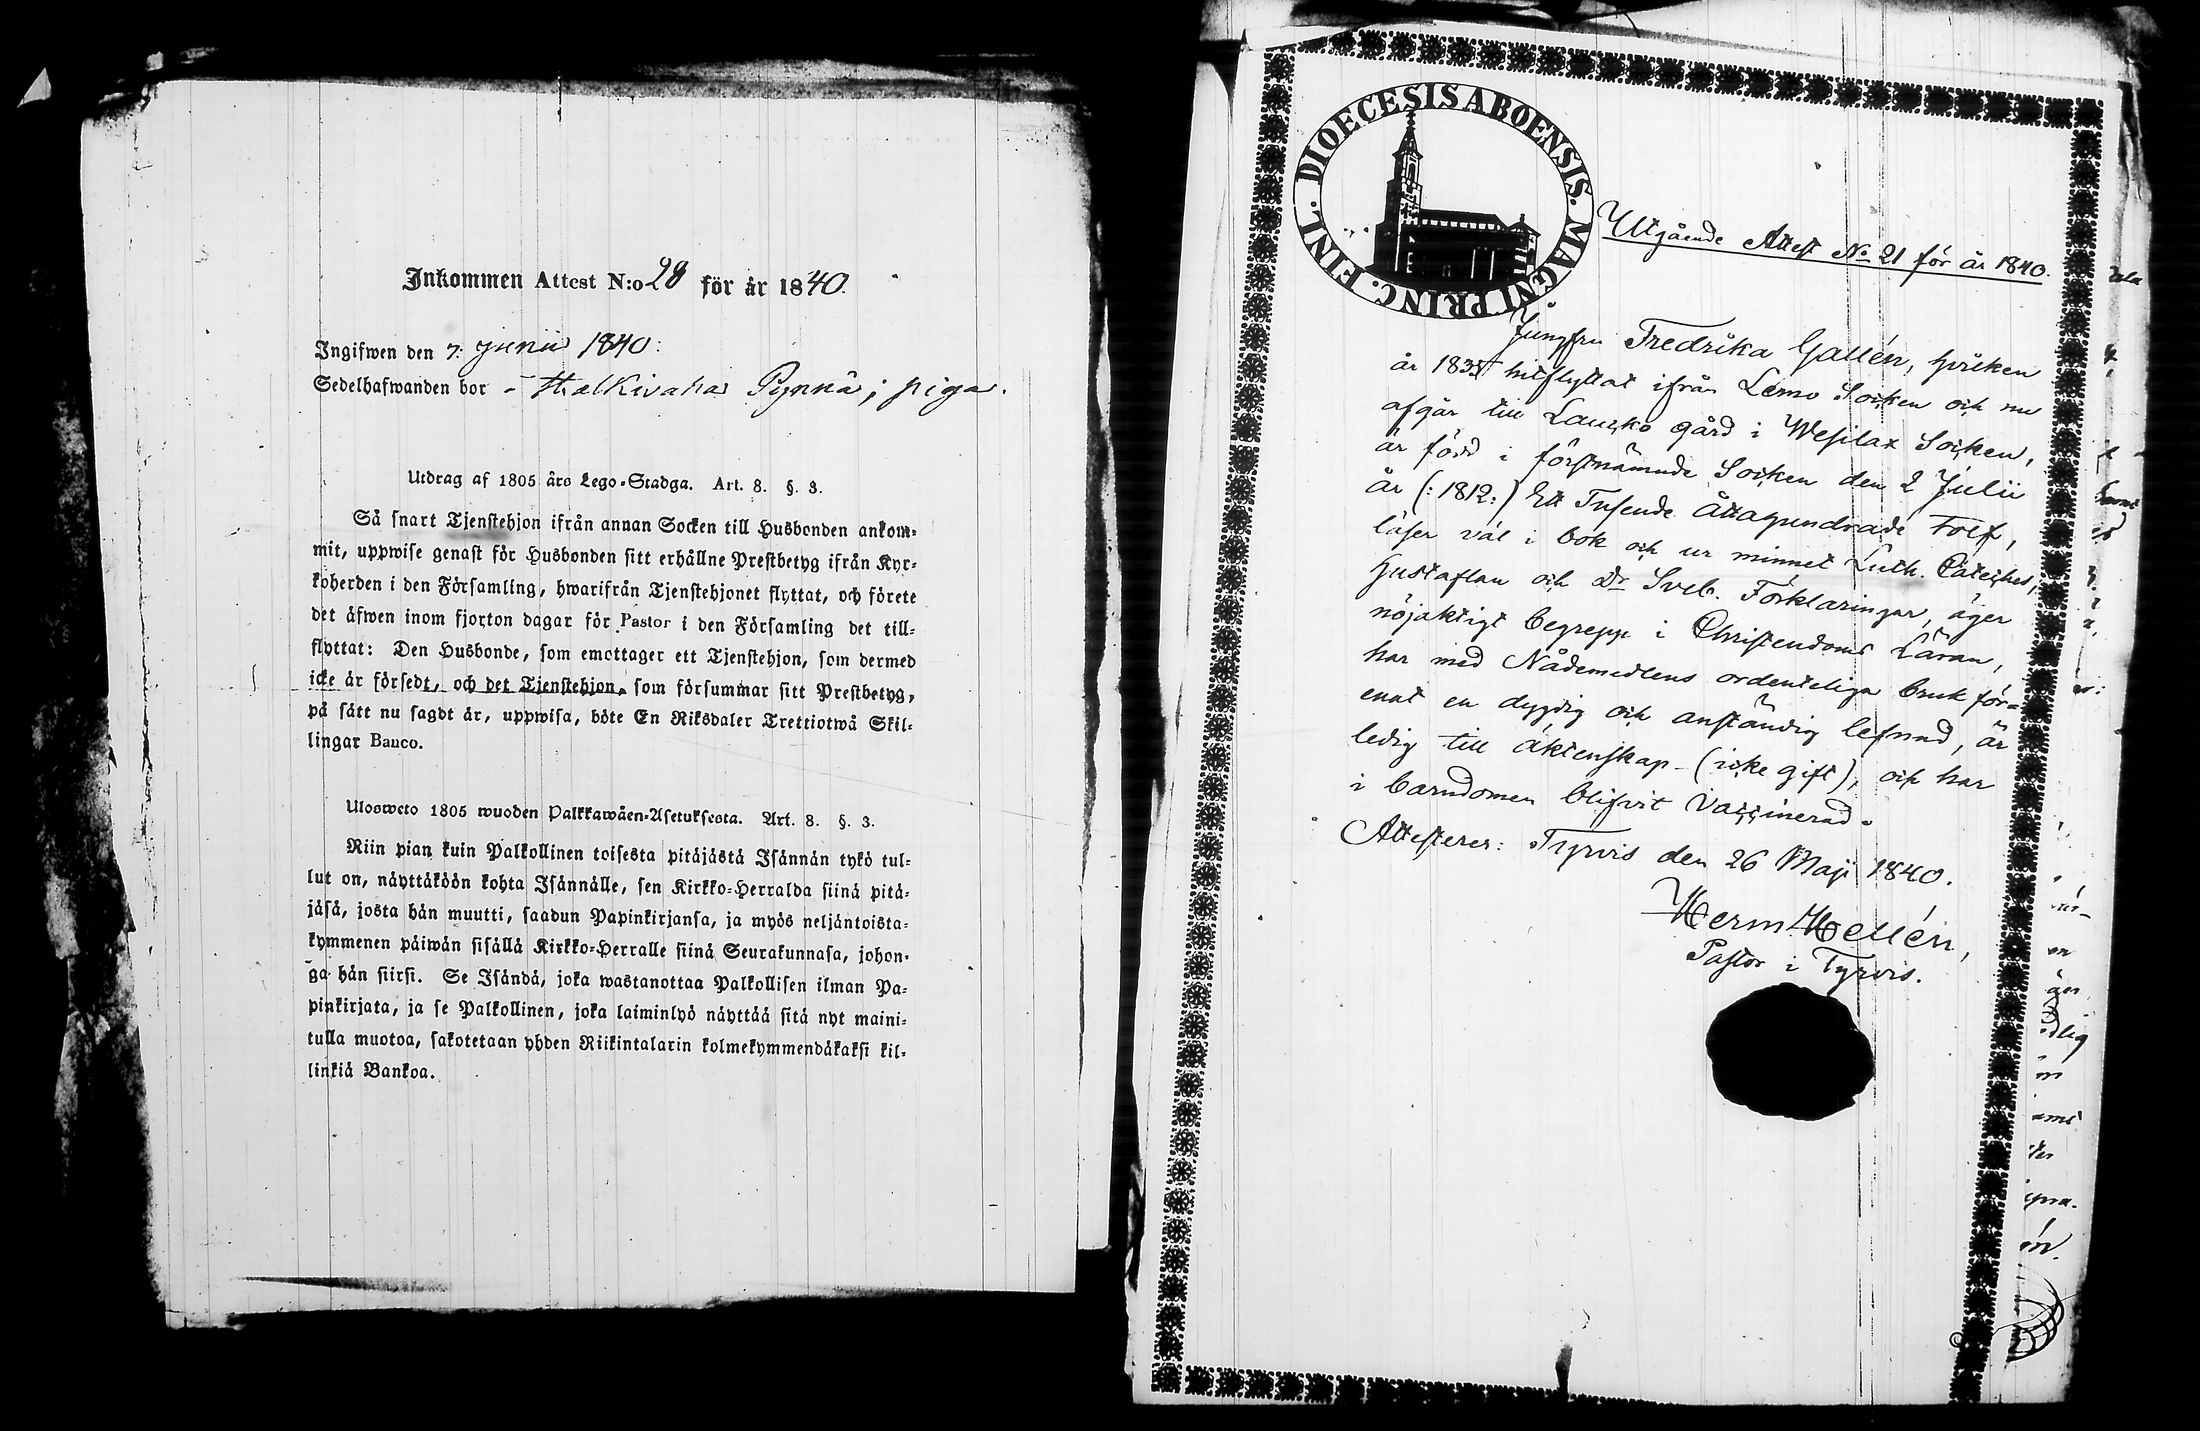 Inkommen Attest N:o 28 för år 1840.
Ingifwen den 7: Junii 1840:
Sedelhafwanden bor - Halkivaha Pynnä; piga.
Utdrag af 1805 års Lego-Stadga. Art. 8. §. 3.
Så snart Tjenstehjon ifrån annan Socken till Husbonden ankom-
mit, uppwise genast för Husbonden sitt erhållne Prestbetyg ifrån Kyr-
koherden i den Församling, hwarifrån Tjenstehjonet flyttat, och förete
det äfwen inom fjorton dagar för Pastor i den Församling det till-
flyttat: Den Husbonde, som emottager ett Tjenstehjon, som dermed
icke är försedt, och det Tjenstehjon, som försummar sitt Prestbetyg,
på sätt nu sagdt är, uppwisa, böte En Riksdaler Trettiotwå Skil-
lingar Banco.
Ulosweto 1805 wuoden Palkkawäen-Asetuksesta. Art. 8. §. 3.
Niin pian kuin Palkollinen toisesta pitäjästä Isännän tykö tul-
lut on, näyttäköön kohta Isännälle, sen Kirkko-Herralda siinä pitä-
jäsä, josta hän muutti, saadun Papinkirjansa, ja myös neljäntoista-
kymmenen päiwän sisällä Kirkko-Herralle siinä Seurakunnasa, johon-
ga hän siirsi. Se Isändä, joka wastanottaa Palkollisen ilman Pa-
pinkirjata, ja se Palkollinen, joka laiminlyö näyttää sitä nyt maini-
tulla muotoa, sakotetaan yhden Riikintalarin kolmekymmendäkaksi kil-
linkiä Bankoa.
DIOECESIS ABOENSIS. MAGNI PRINC. FINL.
Utgående Attest No 21 för år 1840.
Jungfru Fredrika Gallén, hvilken
år 1835 hitflyttat ifrån Lemo Socken och nu
afgår till Laucko gård i Wesilax Socken,
är född i förstnämnde Socken den 2 Julii
år (: 1812:) Ett Tusende Åttahundrade Tolf,
läser väl i bok och ur minnet Luth. Cateches,
Hustaflan och Dr Sveb. Förklaringar, äger
nöjaktigt begrepp i Christendoms Läran,
har med Nådemedlens ordenteliga bruk för-
enat en dygdig och anständig lefnad, är
ledig till äktenskap - (icke gift), och har
i barndomen blifvit vaccinerad.
Attesterer: Tyrvis den 26 Maji 1840.
Herm Hellén,
Pastor i Tyrvis.